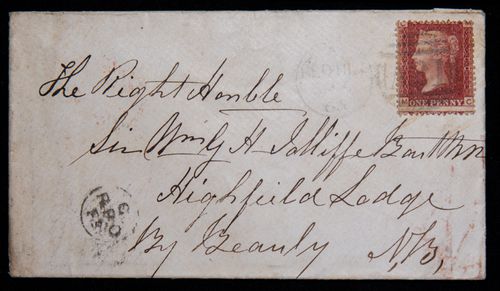 The Right Honble
Sir Wm G H Jolliffe Bart
Highfield Lodge
By Beauly N,B,
ONE PENNY